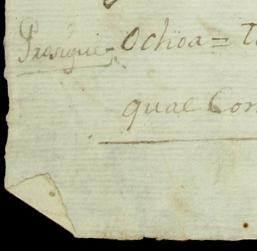 Prosigue = Ochoa = T
qual Con